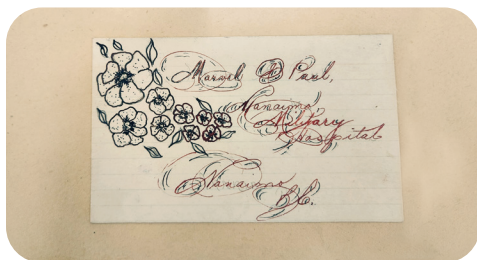 Paul,
Nanaimo
Military
Hospital
Nanaimo
B.C.